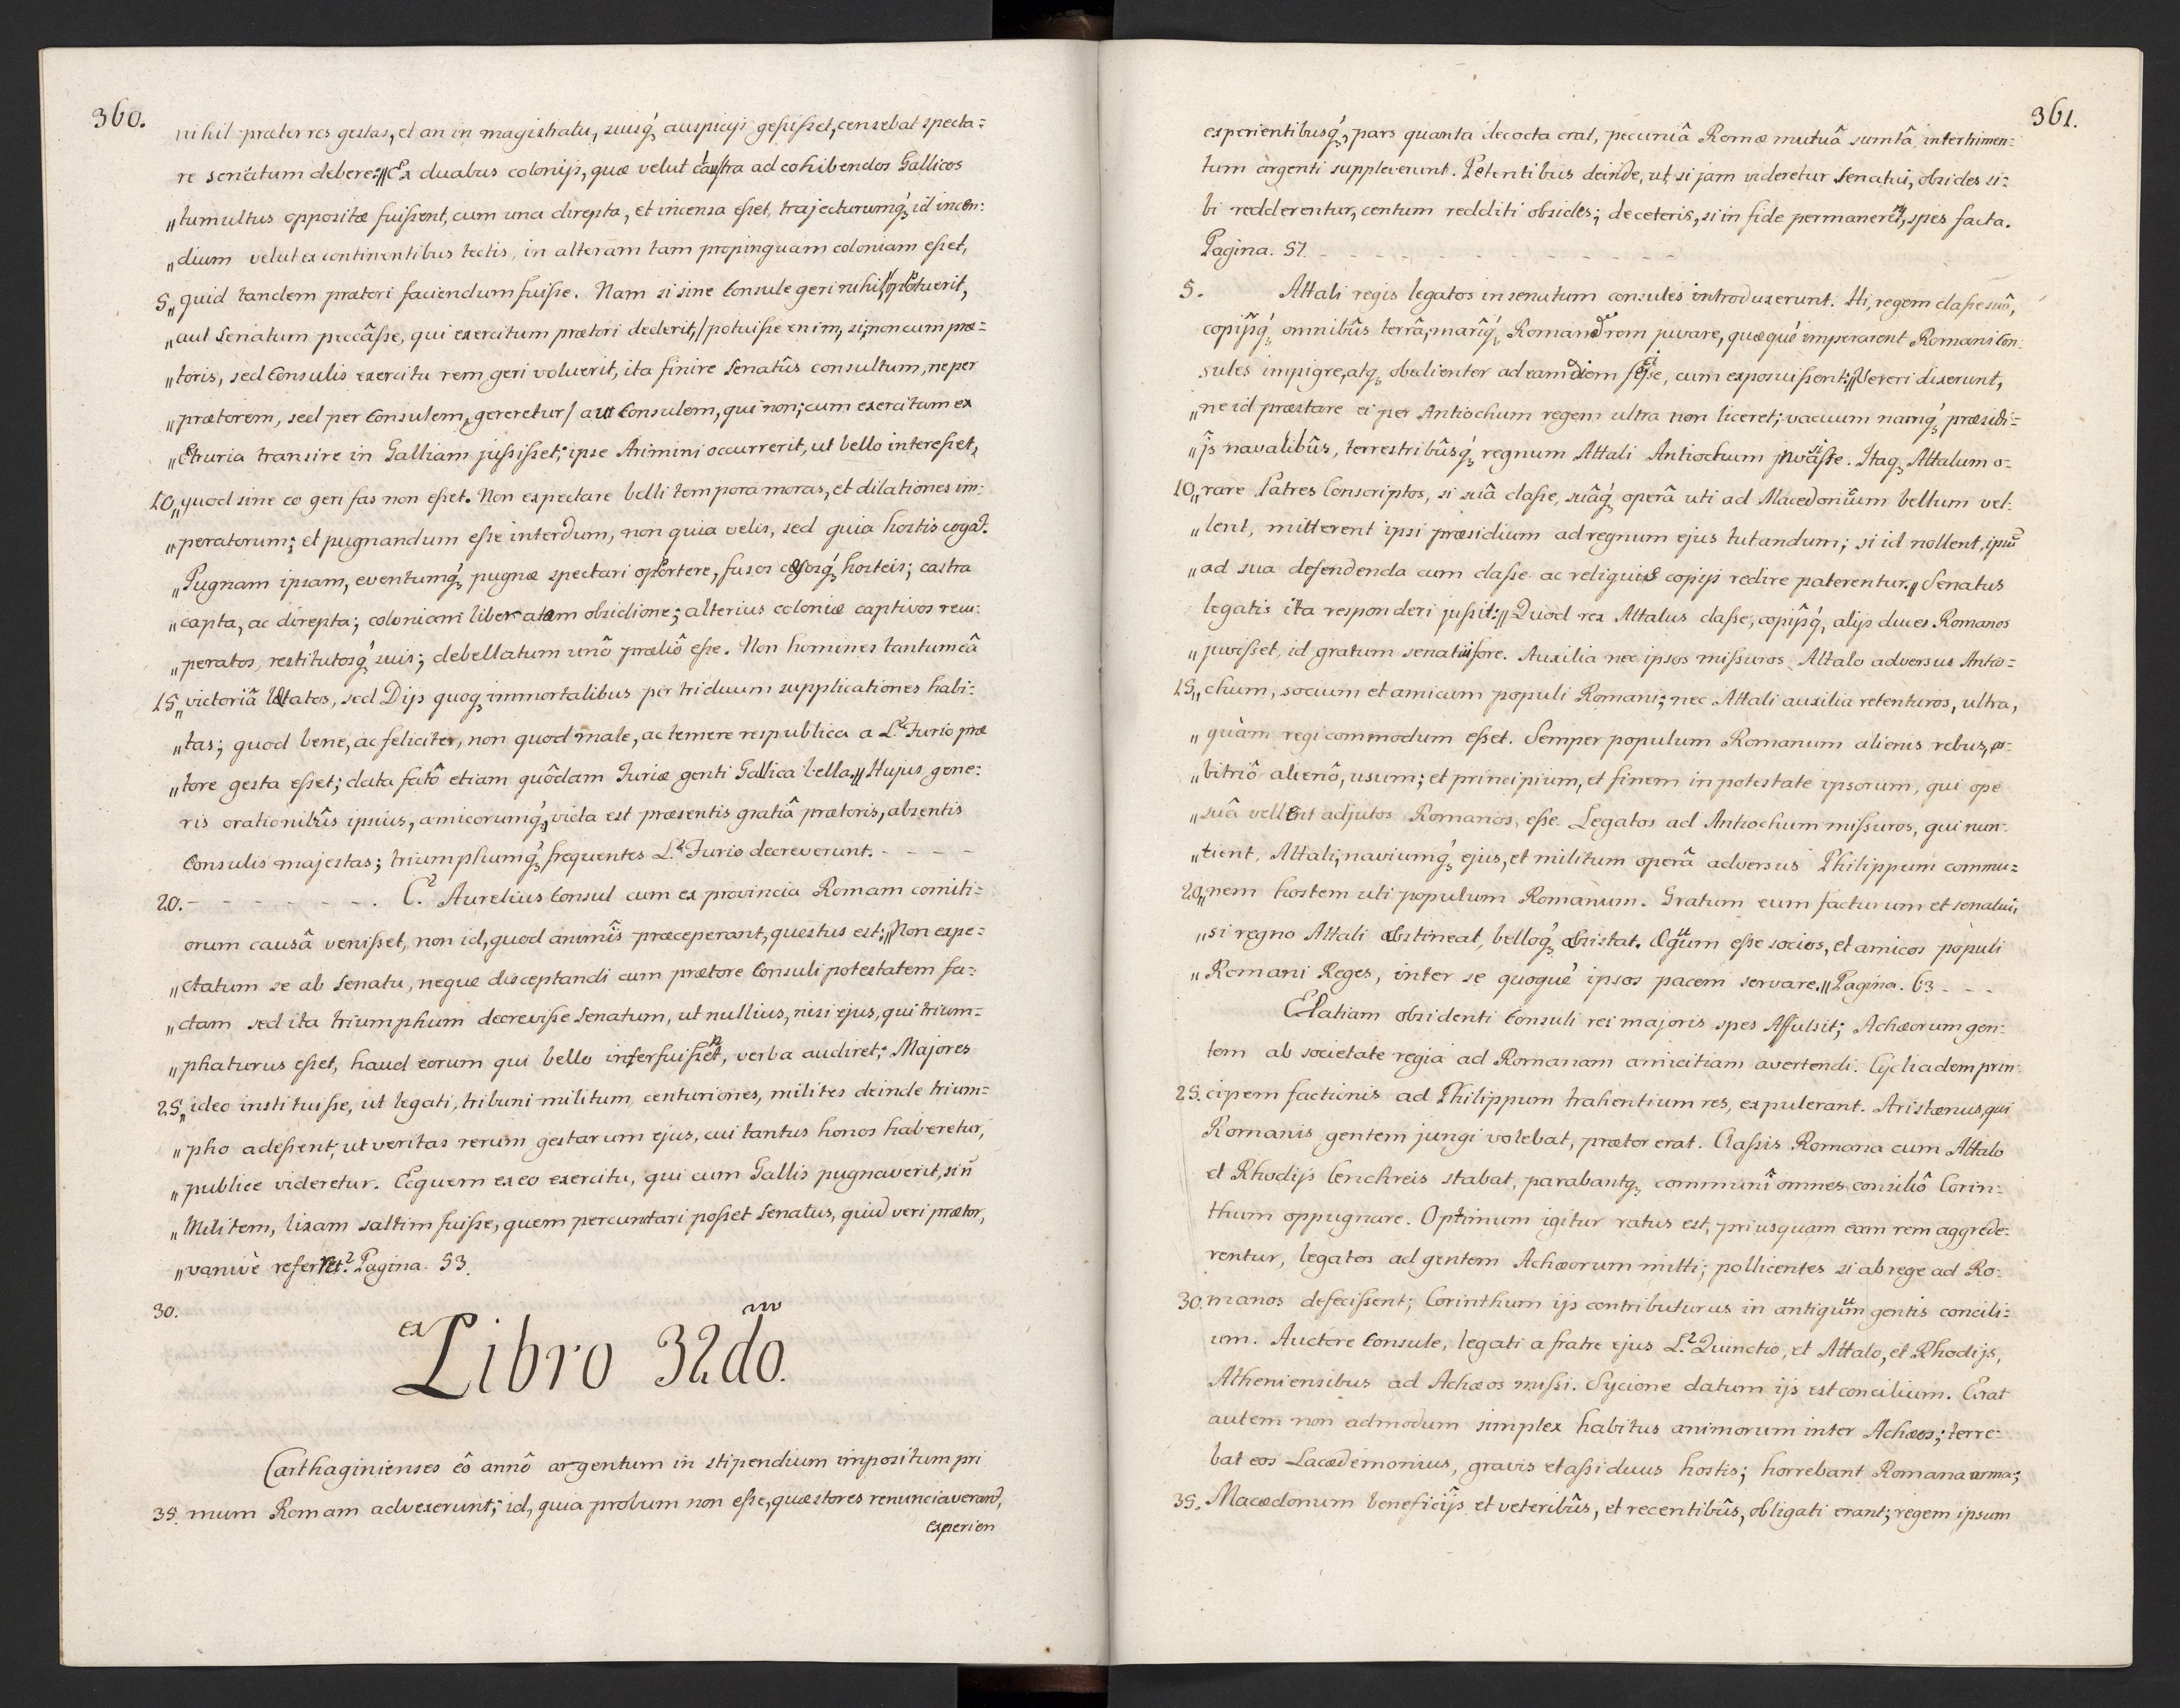 360.
nihil præter res gestas, et an in magistratu, suisq́ auspicijs gessisset, censebat specta=
re senatum debere: „Ex duabus colonijs, quæ velut claustra ad cohibendos Gallicos
„tumultus oppositæ fuissent, cum una direpta, et incensa esset, trajecturumq́ id incen=
„dium velut ex continentibus tectis, in alteram tam propinquam coloniam esset,
5. „quid tandem prætori faciendum fuisse. Nam si sine Consule geri nihil oportuerit,
„aut Senatum peccâsse, qui exercitum prætori dederit, /potuisse enim, si, non cum præ=
„toris, sed Consulis exercitu rem geri voluerit, ita finire Senatûs consultum, ne per
„prætorem, sed per Consulem, gereretur/ aut Consulem, qui non; cum exercitum ex
„Etruria transire in Galliam jussisset; ipse Arimini occurrerit, ut bello interesset,
10. „quod sine eo geri fas non esset. Non expectare belli tempora moras, et dilationes im=
„peratorum; et pugnandum esse interdum, non quia velis, sed quia hostis cogat.
„Pugnam ipsam, eventumq́ pugnæ spectari oportere, fusos cæsosq́ hosteis; castra
„capta, ac direpta; coloniam liberatam obsidione; alterius coloniæ captivos recu=
„peratos, restitutosq́ suis; debellatum unô præliô esse. Non homines tantum eâ
15. „victoriâ lætatos, sed Dijs quoq immortalibus per triduum supplicationes habi=
„tas; quod bene, ac feliciter, non quod male, ac temere respublica a L. Furio præ
„tore gesta esset; data fatô etiam quôdam Furiæ genti Gallica bella. „Hujus gene=
ris orationibûs ipsius, amicorumq́, victa est præsentis gratiâ prætoris, absentis
Consulis majestas; triumphumq́ frequentes L. Furio decreverunt. - - - -
20. - - - - - - - . C. Aurelius Consul cum ex provincia Romam comiti=
orum causâ venisset, non id, quod animîs præceperant, questus est; „Non expe=
„ctatum se ab Senatu, neque disceptandi cum prætore Consuli potestatem fa=
„ctam sed ita triumphum decrevisse Senatum, ut nullius, nisi ejus, qui trium=
„phaturus esset, haud eorum qui bello interfuissent, verba audiret; Majores
25. „ideo instituisse, ut legati, tribuni militum, centuriones, milites deinde trium=
„pho adessent, ut veritas rerum gestarum ejus, cui tantus honos haberetur,
„publice videretur. Ecquem ex eo exercitu, qui cum Gallis pugnaverit, si ñ
„Militem, lixam saltim fuisse, quem percunctari posset Senatus, quid veri prætor,
„vanivè referret? Pagina. 53.
30.
ex Libro 32do.
Carthaginienses eô annô argentum in stipendium impositum pri
35. mum Romam advexerunt; id, quia probum non esse, quæstores renunciaverant,
experien
361.
experientibusq́, pars quanta decocta erat, pecuniâ Romæ mutuâ sumtâ, intertrimen=
tum argenti suppleverunt. Petentibus deinde, ut, si jam videretur Senatui, obsides si=
bi redderentur, centum redditi obsides; de ceteris, si in fide permanerent, spes facta.
Pagina. 57. - - - - - - - - - - - - -
5. Attali regis legatos in senatum consules introduxerunt. Hi, regem classe suâ,
copijsq́ omnibûs terrâ, marîq́ Romanam rem juvare, quæque imperarent Romani Con=
sules impigre, atq obedienter ad eam diem fecisse, cum exposuissent; „Vereri dixerunt,
„ne id præstare ei per Antiochum regem ultra non liceret; vacuum namq́ præsidi=
„js navalibûs, terrestribûsq́ regnum Attali Antiochum invasisse. Itaq Attalum o=
10. „rare Patres Conscriptos, si suâ classe, suâq́ operâ uti ad Macedonicum bellum vel=
„lent, mitterent ipsi præsidium ad regnum ejus tutandum; si id nollent, ipsū
„ad sua defendenda cum classe ac reliquis copijs redire paterentur. „Senatus
legatis ita responderi jussit: „Quod rex Attalus classe, copîjsq́, alijs duces Romanos
„juvisset, id gratum senatui fore. Auxilia nec ipsos missuros Attalo adversus Antio=
15. „chum, socium et amicum populi Romani; nec Attali auxilia retenturos, ultra,
„quàm regi commodum esset. Semper populum Romanum alienis rebus, ar=
„bitriô alienô, usum; et principium, et finem in potestate ipsorum, qui ope
„suâ vellent adjutos Romanos, esse. Legatos ad Antiochum missuros, qui nun=
„tient, Attali, naviumq́ ejus, et militum operâ adversus Philippum commu=
20. „nem hostem uti populum Romanum. Gratum eum facturum et senatui,
„si regno Attali abstineat, belloq́ absistat. Æquum esse socios, et amicos populi
„Romani Reges, inter se quoque ipsos pacem servare. „Pagina. 63 - - -
Elatiam obsidenti Consuli rei majoris spes Affulsit; Achæorum gen=
tem ab societate regia ad Romanam amicitiam avertendi. Cycliadem prin=
25. cipem factionis ad Philippum trahentium res, expulerant. Aristænus, qui
Romanis gentem jungi volebat, prætor erat. Classis Romana cum Attalo
et Rhodijs Cenchreis stabat, parabantq communî omnes consiliô Corin=
thum oppugnare. Optimum igitur ratus est, priusquam eam rem aggrede=
rentur, legatos ad gentem Achæorum mitti; pollicentes si ab rege ad Ro=
30. manos defecissent; Corinthum ijs contributurus in antiquum gentis concili=
um. Auctore Consule, legati a fratre ejus L. Quinctio, et Attalo, et Rhodijs,
Atheniensibus ad Achæos missi. Sycione datum ijs est concilium. Erat
autem non admodum simplex habitus animorum inter Achæos; terre=
bat eos Lacædemonius, gravis et assiduus hostis; horrebant Romana arma;
35. Macædonum beneficîjs et veteribûs, et recentibûs, obligati erant; regem ipsum